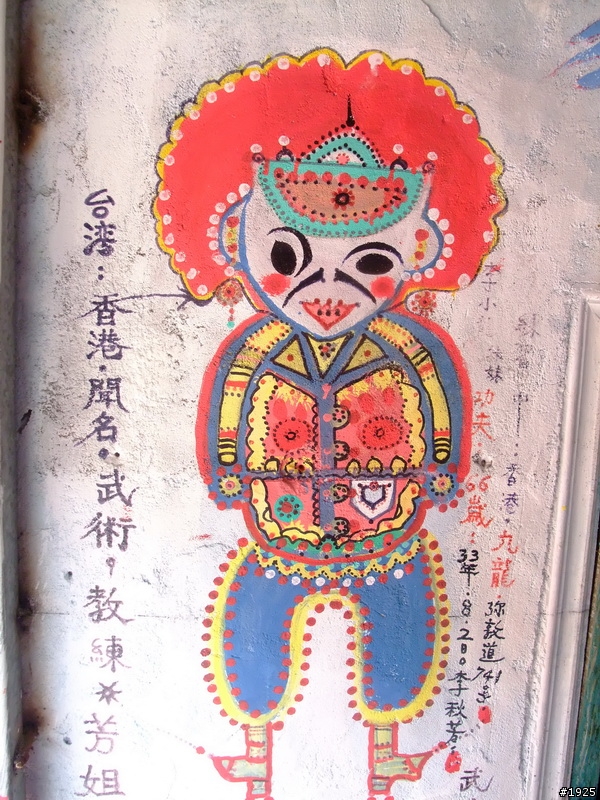 台湾：香港．聞名：武術，教練＊芳姐
小
妹妹
功夫
06歲：
33年．8．2日。李秋芳
香港．九龍．弥敦道741号
武
#1925